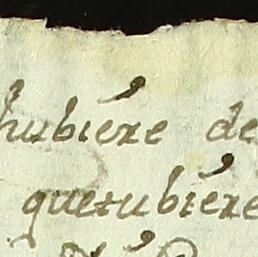 hubiére de
quesubiére